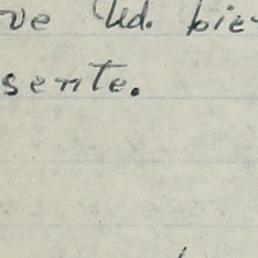 ve Ud. bie
sente.